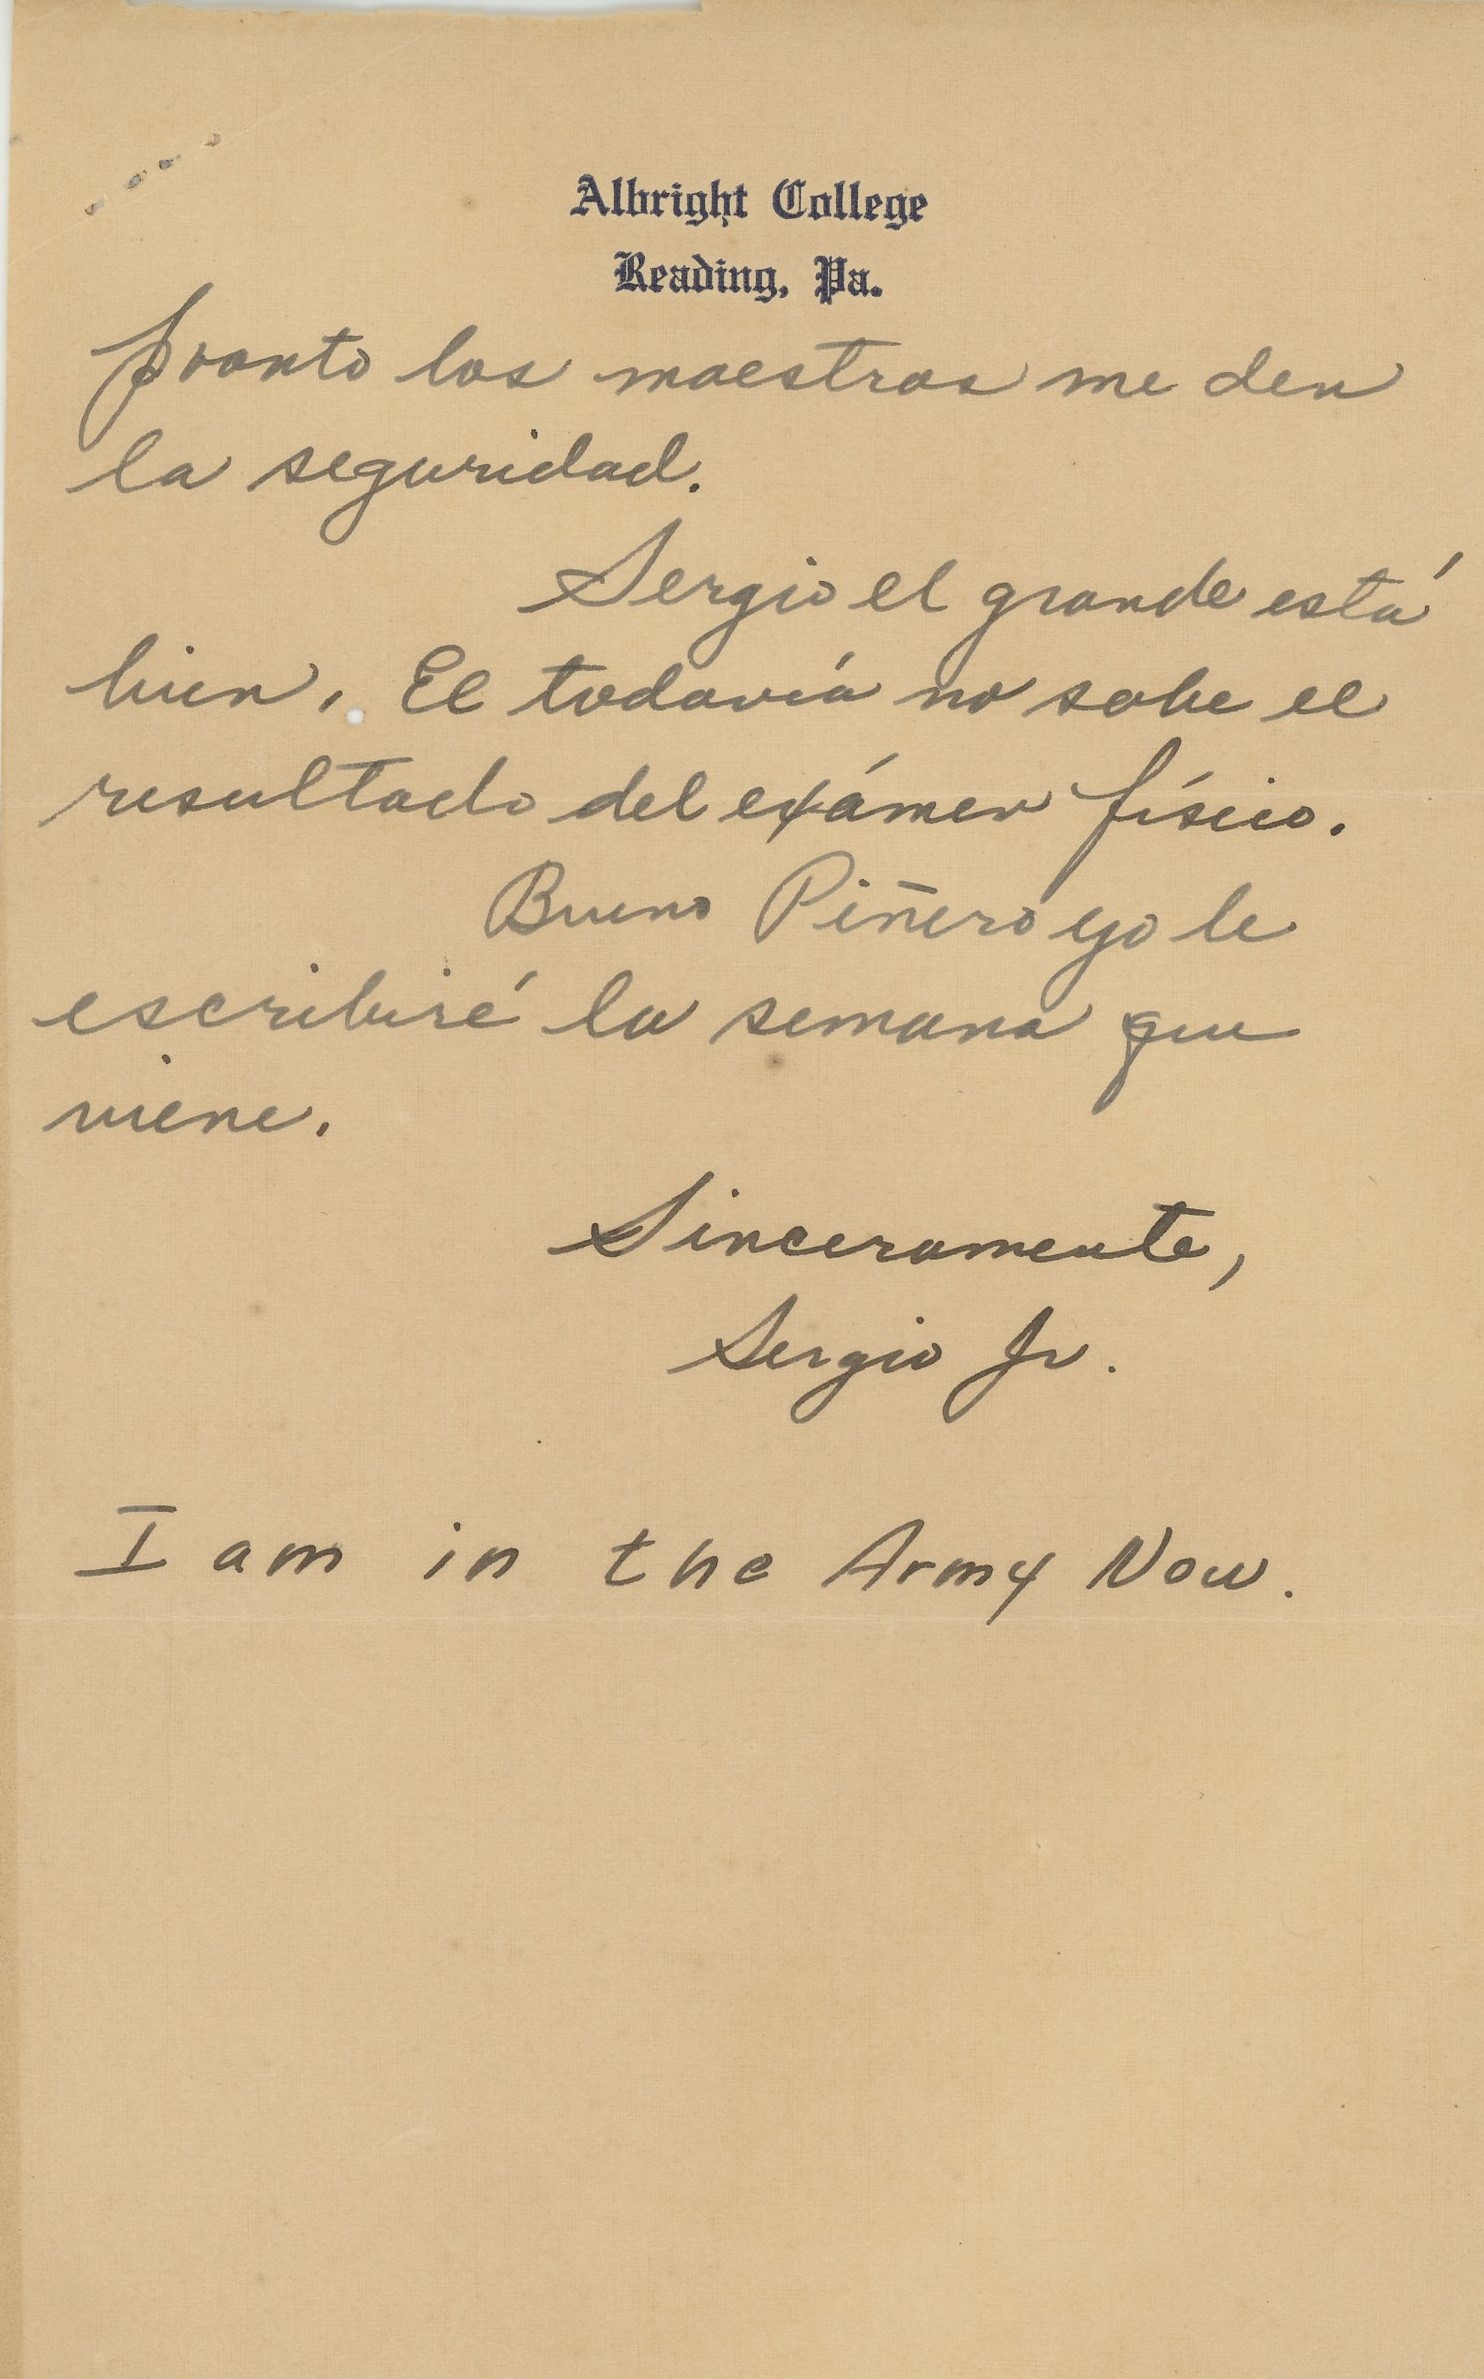 Albright College
Reading, Pa.
pronto los maestros me den
la seguridad.
Sergio el grande está
bien. El todavía no sabe el
resultado del exámen físico.
Bueno Piñero yo le
escribiré la semana que
viene.
Sinceramente,
Sergio Jr.
I am in the Army Now.